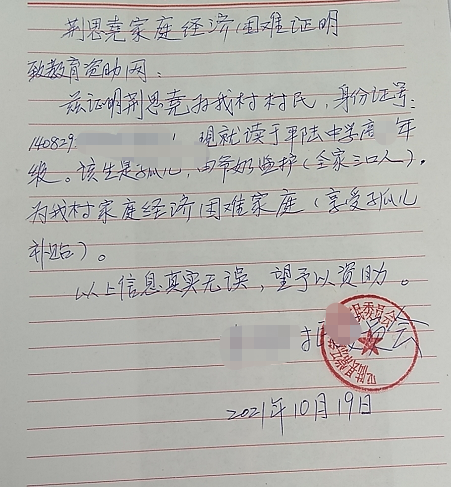 荆思尧家庭经济困难证明
致教育资助网:
兹证明荆思尧为我村村民,身份证号:
140829 现就读于平陆中学高 年
级。该生是孤儿,由爷奶监护(全家三口人).
为我村家庭经济困难家庭(享受孤儿
补贴)。
以上信息真实无误,望予以资助。
委员会
2021年10月19日